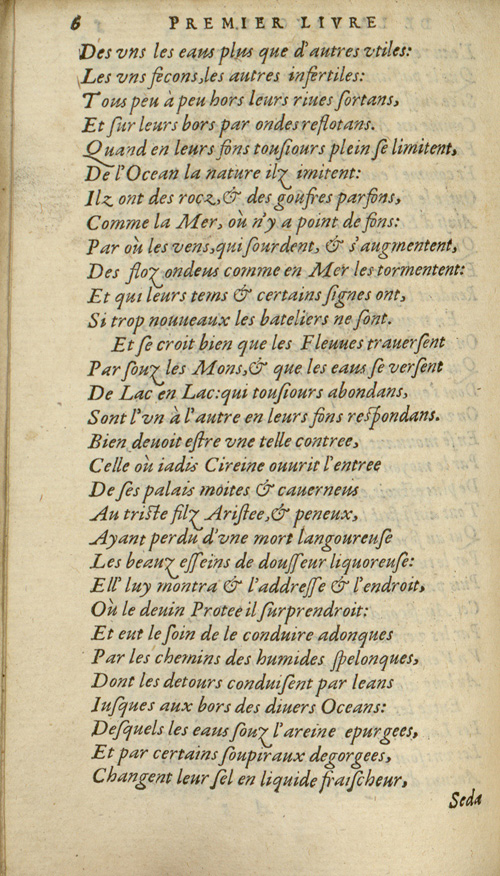 6 PREMIER LIVRE
Des vns les eaus plus que d'autres vtiles:
Les vns fécons,les autres infertiles:
Tous peu à peu hors leurs riues ſortans,
Et ſur leurs bors par ondes reflotans.
Quand en leurs fons touſiours plein ſe limitent,
De l'Ocean la nature ilz imitent:
Ilz ont des rocz,& des goufres parfons,
Comme la Mer, où n'y a point de fons:
Par où les vens,qui ſourdent, & s'augmentent,
Des floz ondeus comme en Mer les tormentent:
Et qui leurs tems & certains ſignes ont,
Si trop nouueaux les bateliers ne ſont.
Et ſe croit bien que les Fleuues trauerſent
Par ſouz les Mons,& que les eaus ſe verſent
De Lac en Lac:qui touſiours abondans,
Sont l'vn à l'autre en leurs fons reſpondans.
Bien deuoit eſtre vne telle contree,
Celle où iadis Cireine ouurit l'entree
De ſes palais moites & cauerneus
Au triſte filz Ariſtee,& peneux,
Ayant perdu d'vne mort langoureuſe
Les beauz eſſeins de douſſeur liquoreuſe:
Ell' luy montra & l'addreſſe & l'endroit,
Où le deuin Protee il ſurprendroit:
Et eut le ſoin de le conduire adonques
Par les chemins des humides ſpelonques,
Dont les detours conduiſent par leans
Iuſques aux bors des diuers Oceans:
Deſquels les eaus ſouz l'areine epurgees,
Et par certains ſoupiraux degorgees,
Changent leur ſel en liquide fraiſcheur,
Seda